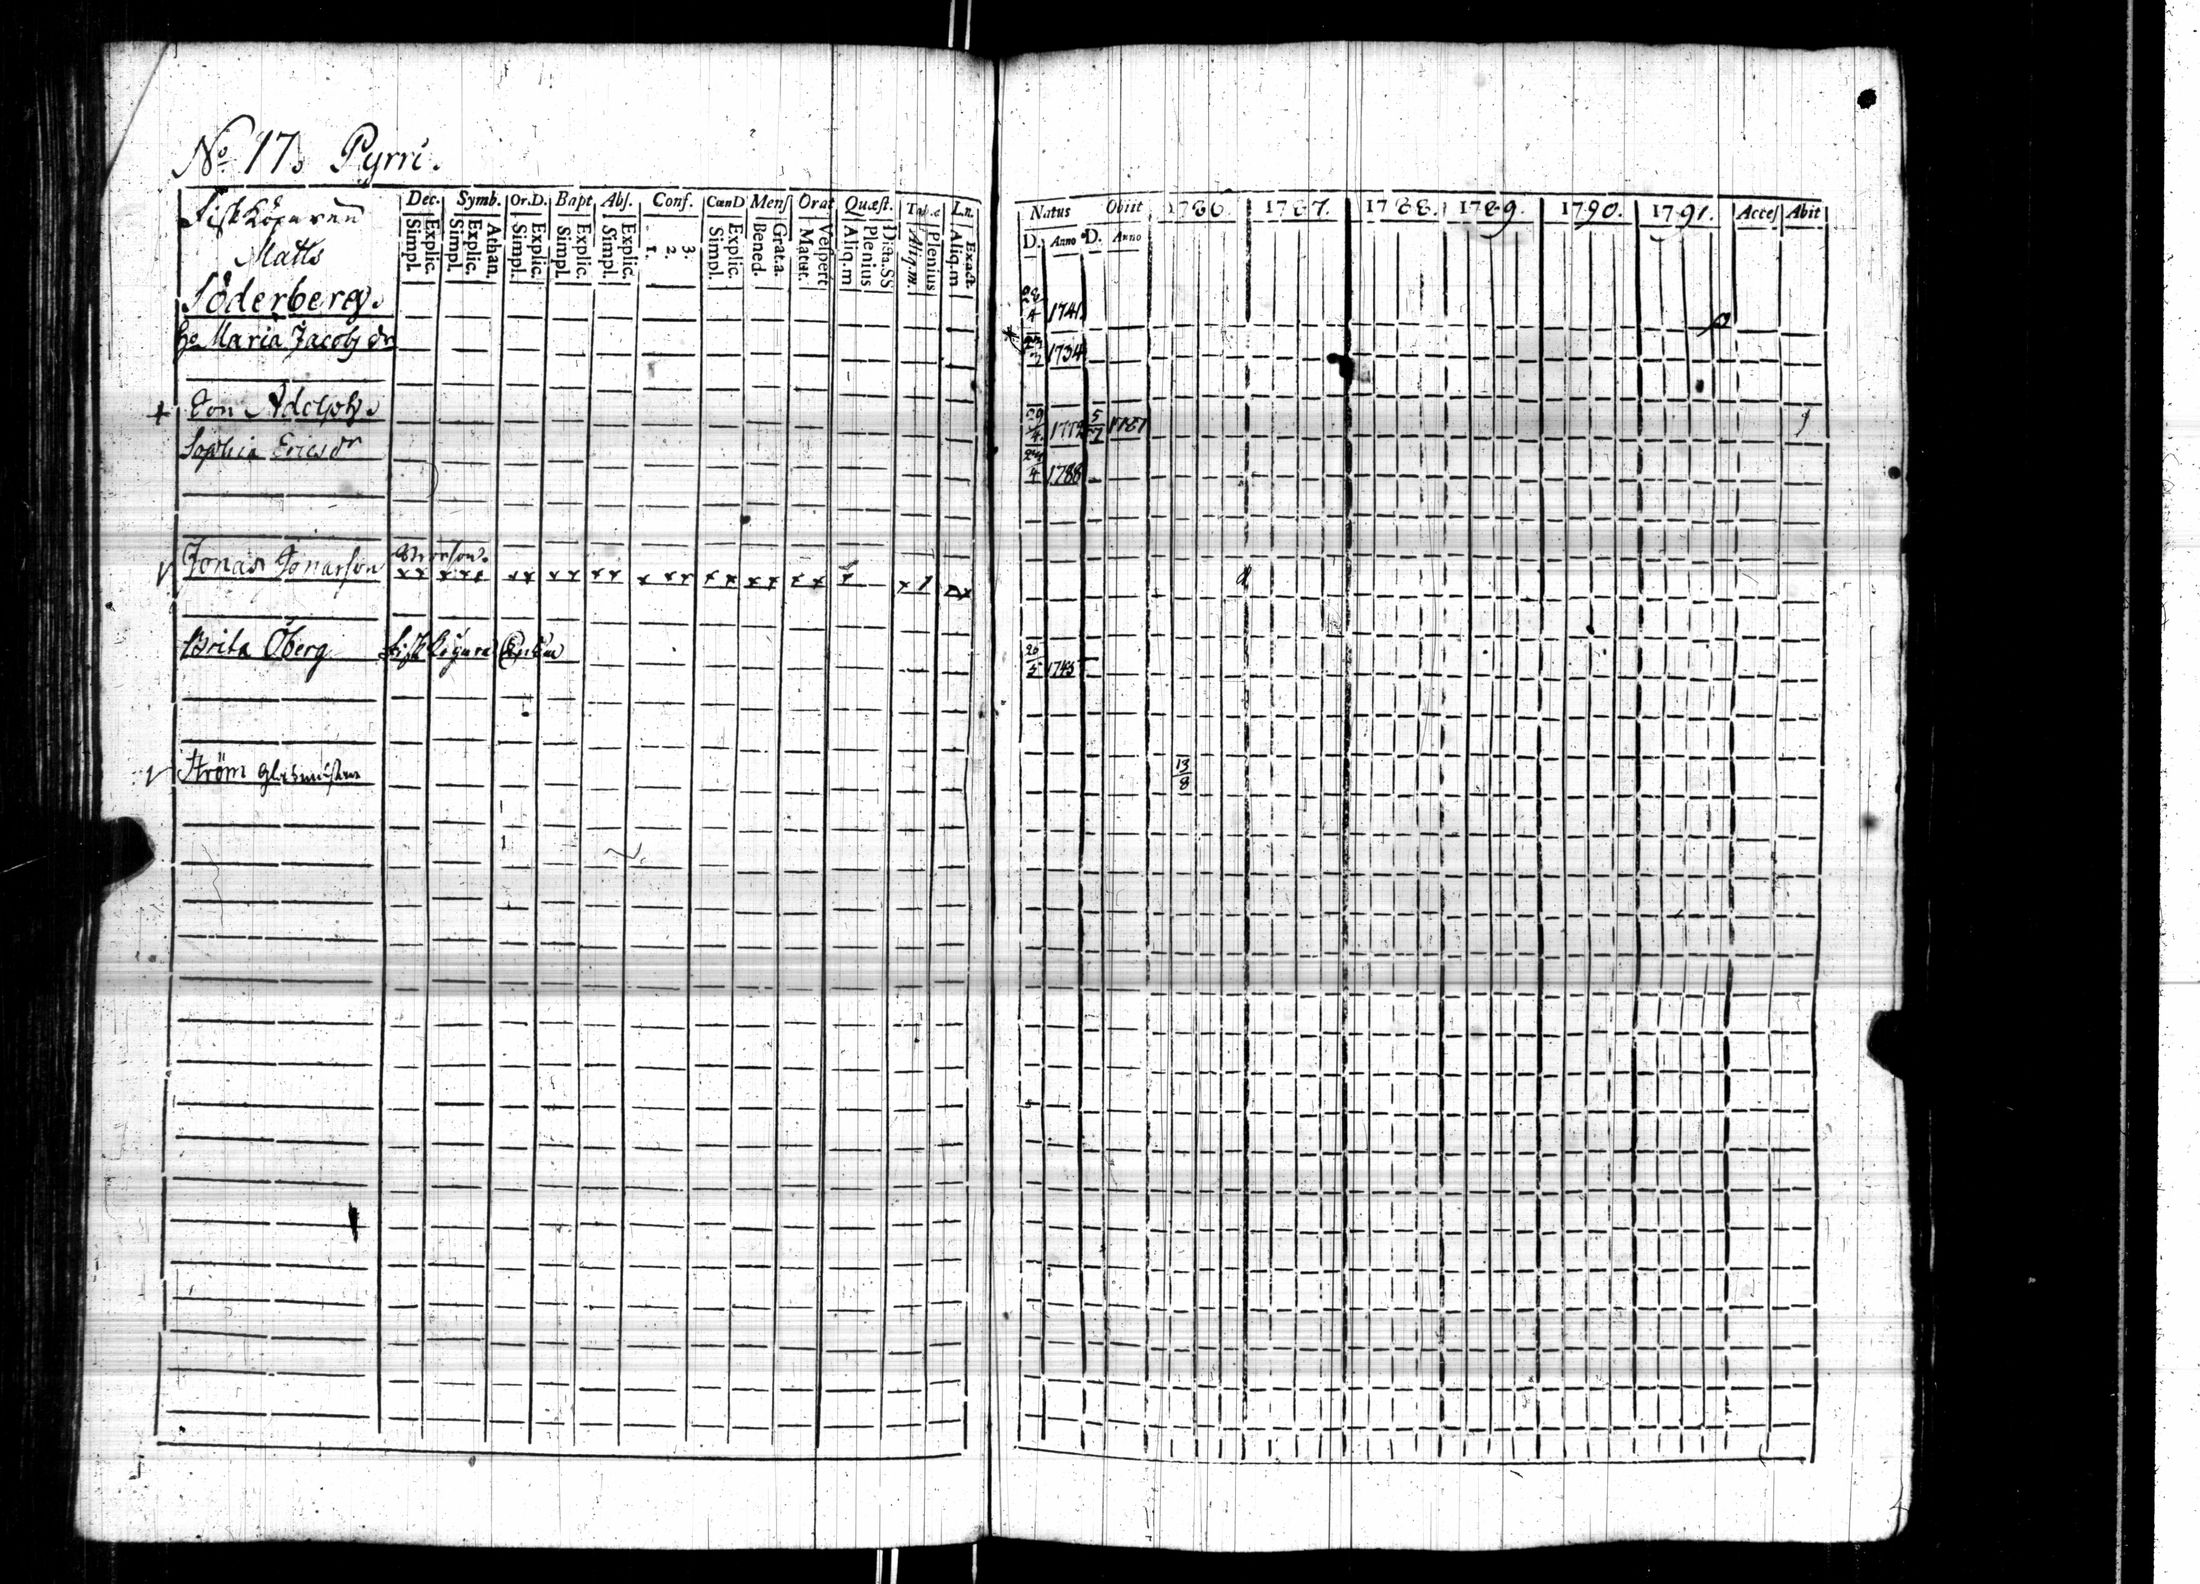 No 17. Pyrri.
Dec. Symb. Or.D. Bapt Abs. Conf. CœnD Mens Orat Quæst. Ln.
Simpl. Explic. Simpl. Explic. Athan. Simpl. Explic. Simpl. Explic. Simpl. Explic. 1. 2. 3. Simpl. Explic. Bened. Grat.a. Matut. Vespert Aliq.m Plenius Dicta.SS Aliq.m. Plenius Aliq.m Exact
Natus Obiit 1786. 1787. 1788. 1789. 1790. 1791. Acces Abit
D. Anno D. Anno
Fiskköparen
Matts
Söderberg. 4 1741
H. Maria Jacobs dr 1734
Son Adolph. 29/4 1772 5/7 1787
Sophia Ericsdr 24/4 1788
Jonas Jonasson
x x x x x x x x x x x x x x x x x x x x x x
Brita Öberg 26/5 1745
Ström Glasmästare 13/8